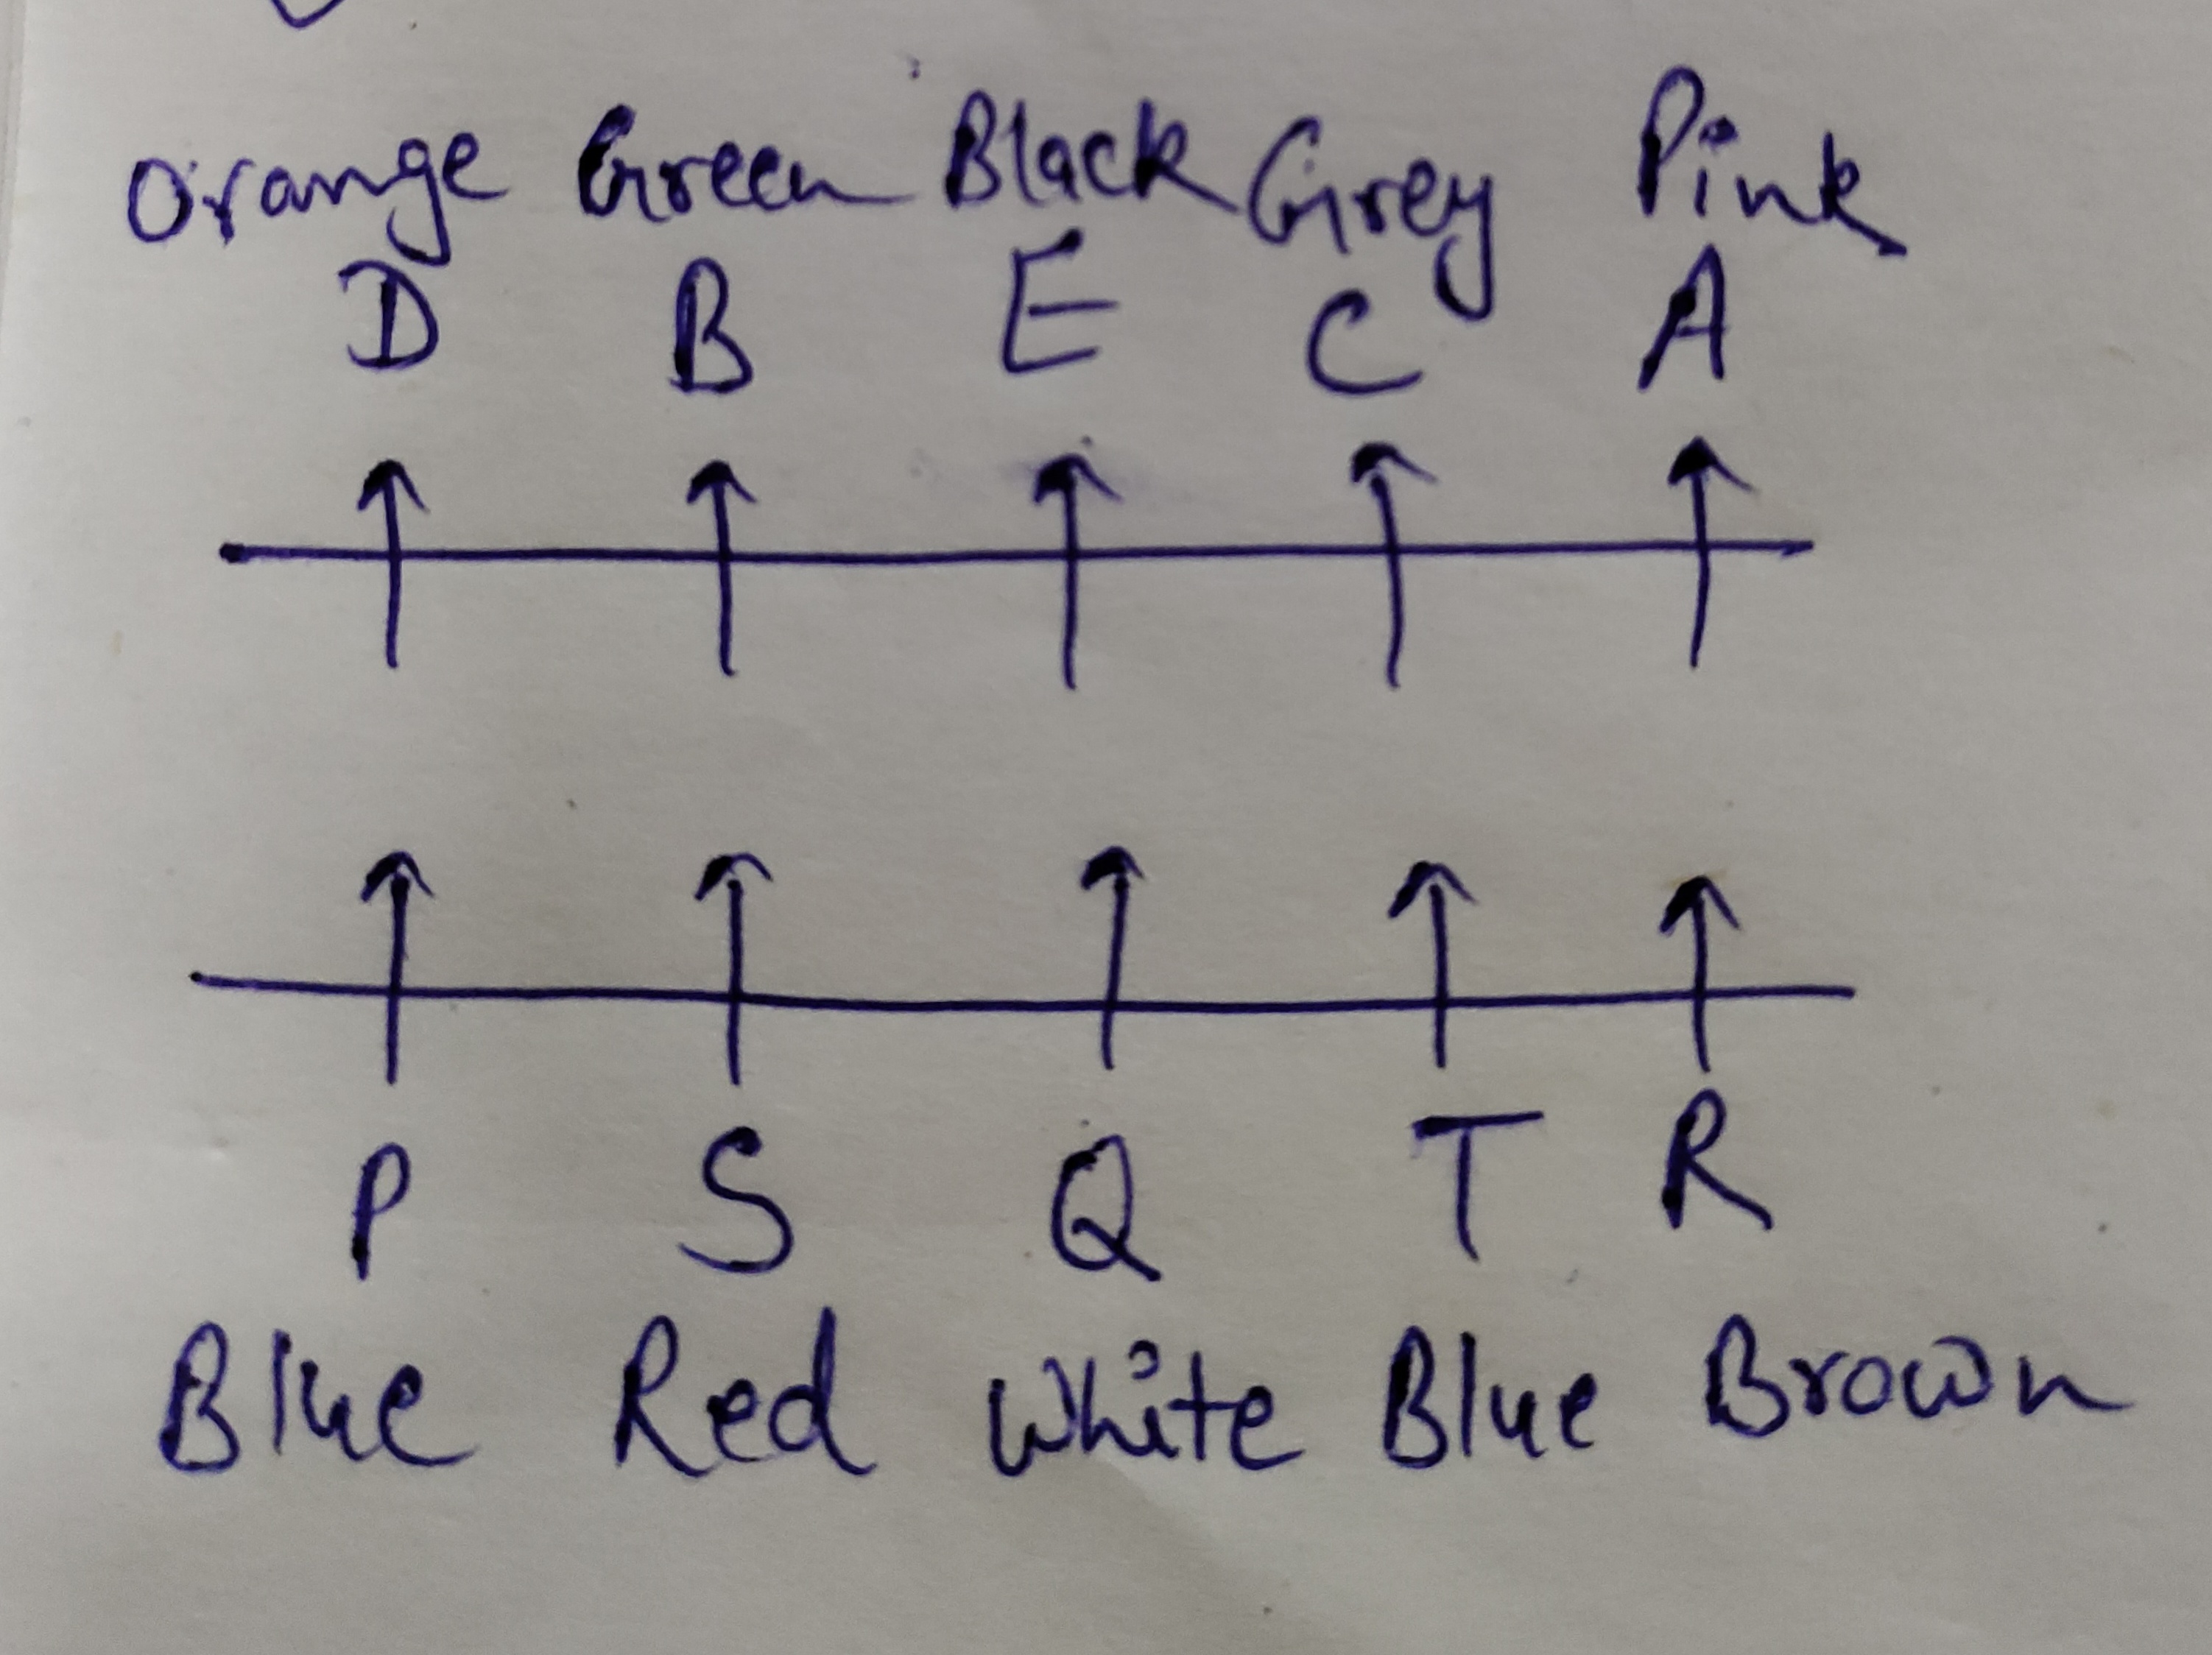 Orange Green Black Grey Pink
D B E C A
P S Q T R
Blue Red White Blue Brown